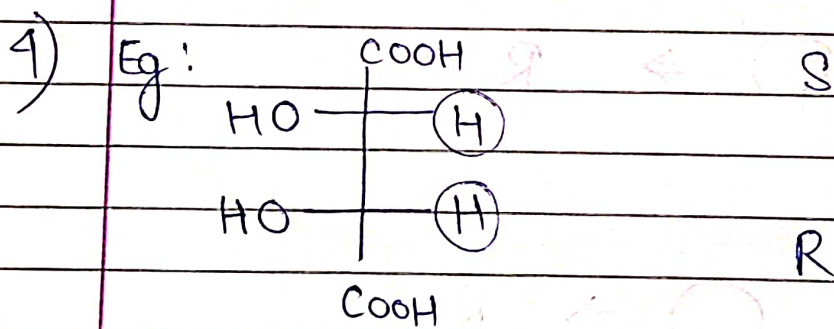 4) Eg: COOH S
HO H
HO H
R
COOH